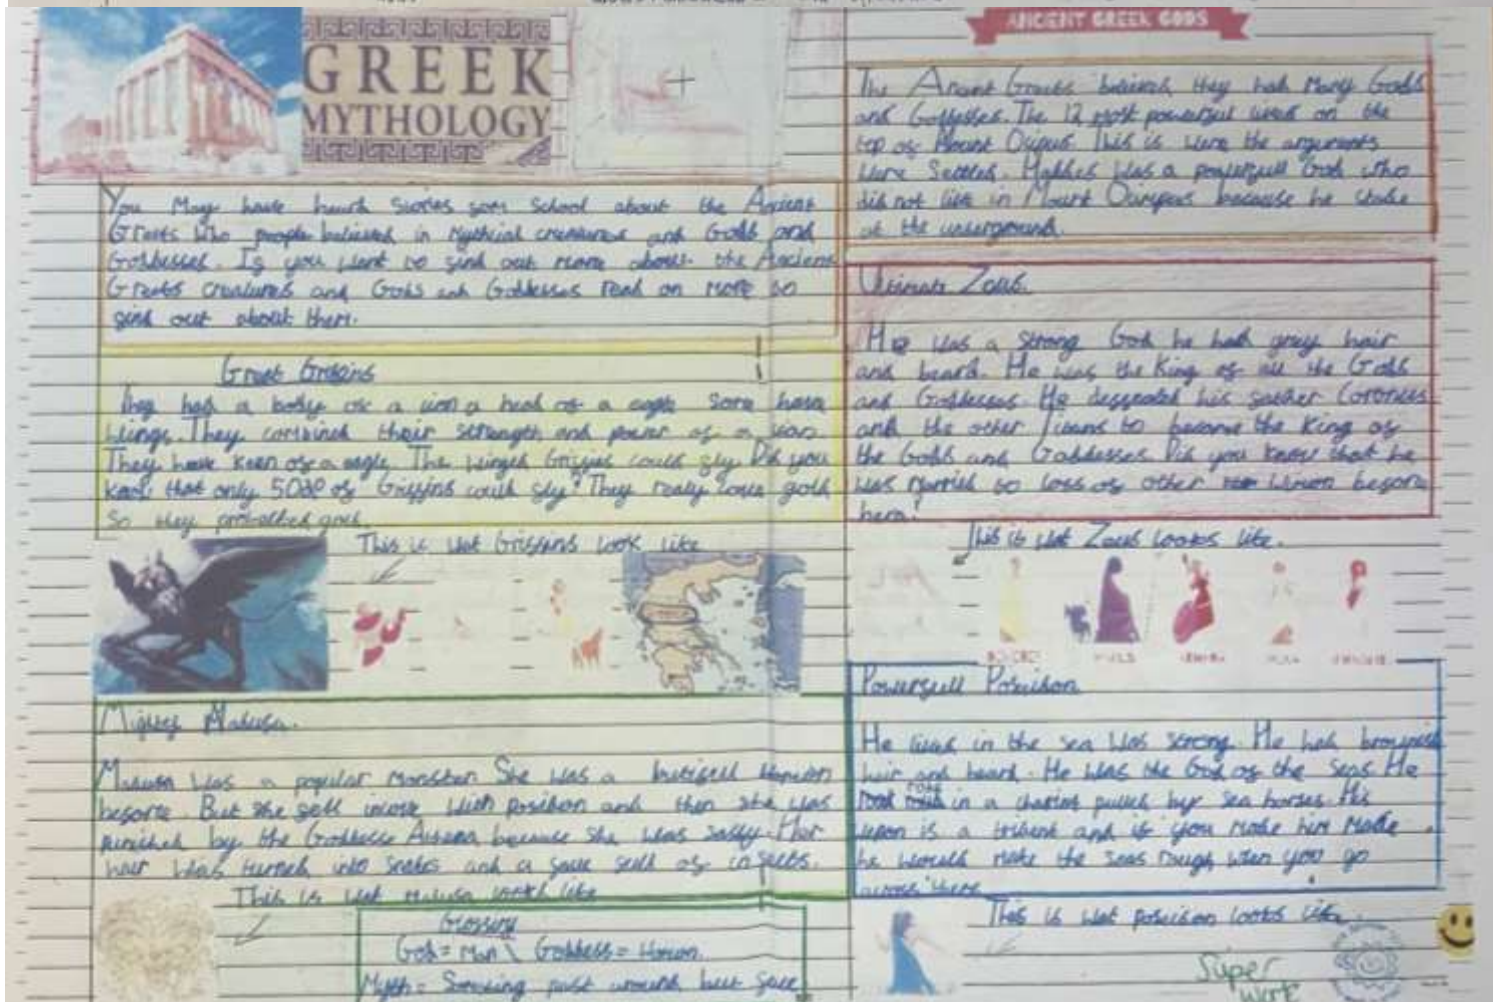 GREEK
MYTHOLOGY
You May have heard Stories from School about the Ancient
Greeks who people believed in Mythical creatures and Godds and
Goddesses. If you want to find out more about the Ancient
Greeks creatures and Gods and Goddesses read on more to
find out about them.
Great Griffins
They had a body of a lion a head of a eagle Some have
wings. They combined their strength and power of a lion.
They have keen of a eagle. The winged Griffins could fly. Did you
know that only 50% of Griffins could fly? They really love gold
So they protected gold.
This is wat Griffins look like
Mighty Madusa.
Madusa was a popular monster. She was a
before. But she fell inlove with posidon and then she was
punished by the Goddesse because she was sassy. Her
hair was turned into snakes and a face full of insects.
This is wat madusa looks like
Glossiry
God = Man \ Goddess = Women.
Myth = past around but
ANCIENT GREEK GODS
The Ancient Greeks believed they had Many Godds
and Goddesses. The 12 most powerful lived on the
top of Mount This is were the arguments
were Settled. was a powerfull God who
did not live in Mount because he
at the underground.
Ultimate Zeus.
He was a strong God he had grey hair
and beard. He was the King of all the Godds
and Goddesses. He his father
and the other to become the King of
the Godds and Goddesses. Did you know that he
was married to of other women before
hera?
This is wat Zeus looks like.
Powerfull Poseidon
He lived in the sea was strong. He had brownish
hair and beard. He was the God of the Seas. He
rode in a chariot pulled by sea horses. His
wepon is a trident and if you made him made
he would make the seas rough when you go
across there
This is wat poseidon looks like.
Super
work